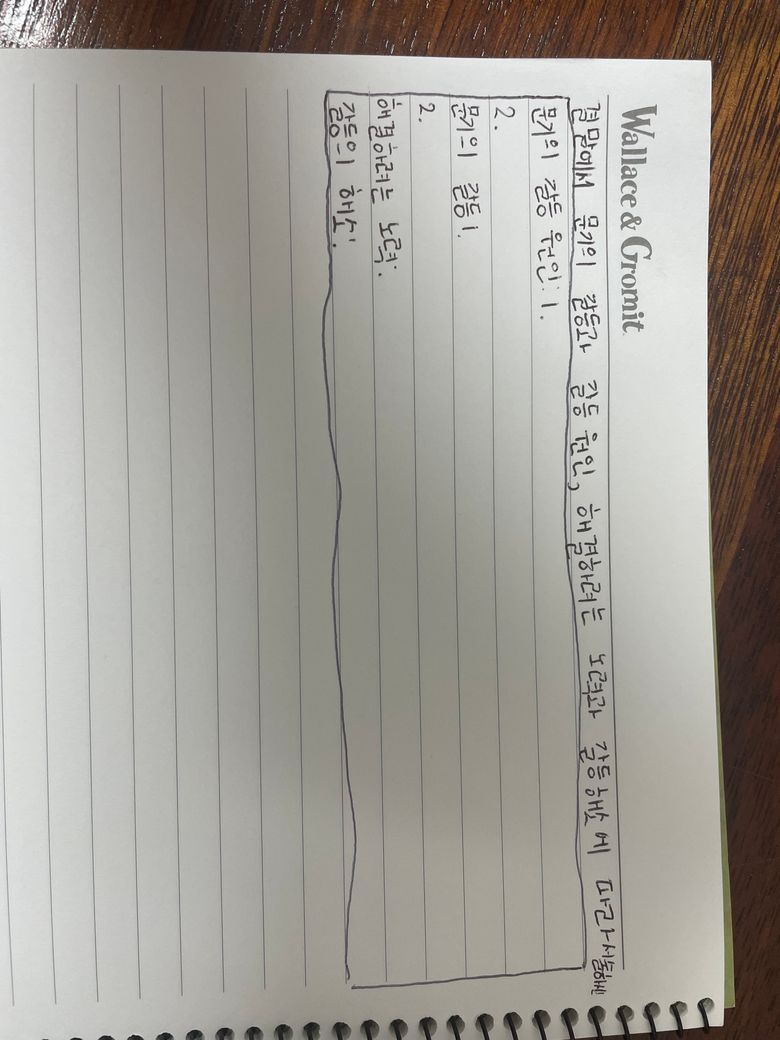 Wallace & Gromit
결말에서 문기의 갈등과 갈등 원인, 해결하려는 노력과 갈등해소에 따라 서술하시
문기의 갈등 원인: 1.
2.
문기의 갈등 1.
2.
해결하려는 노력:
갈등의 해소: